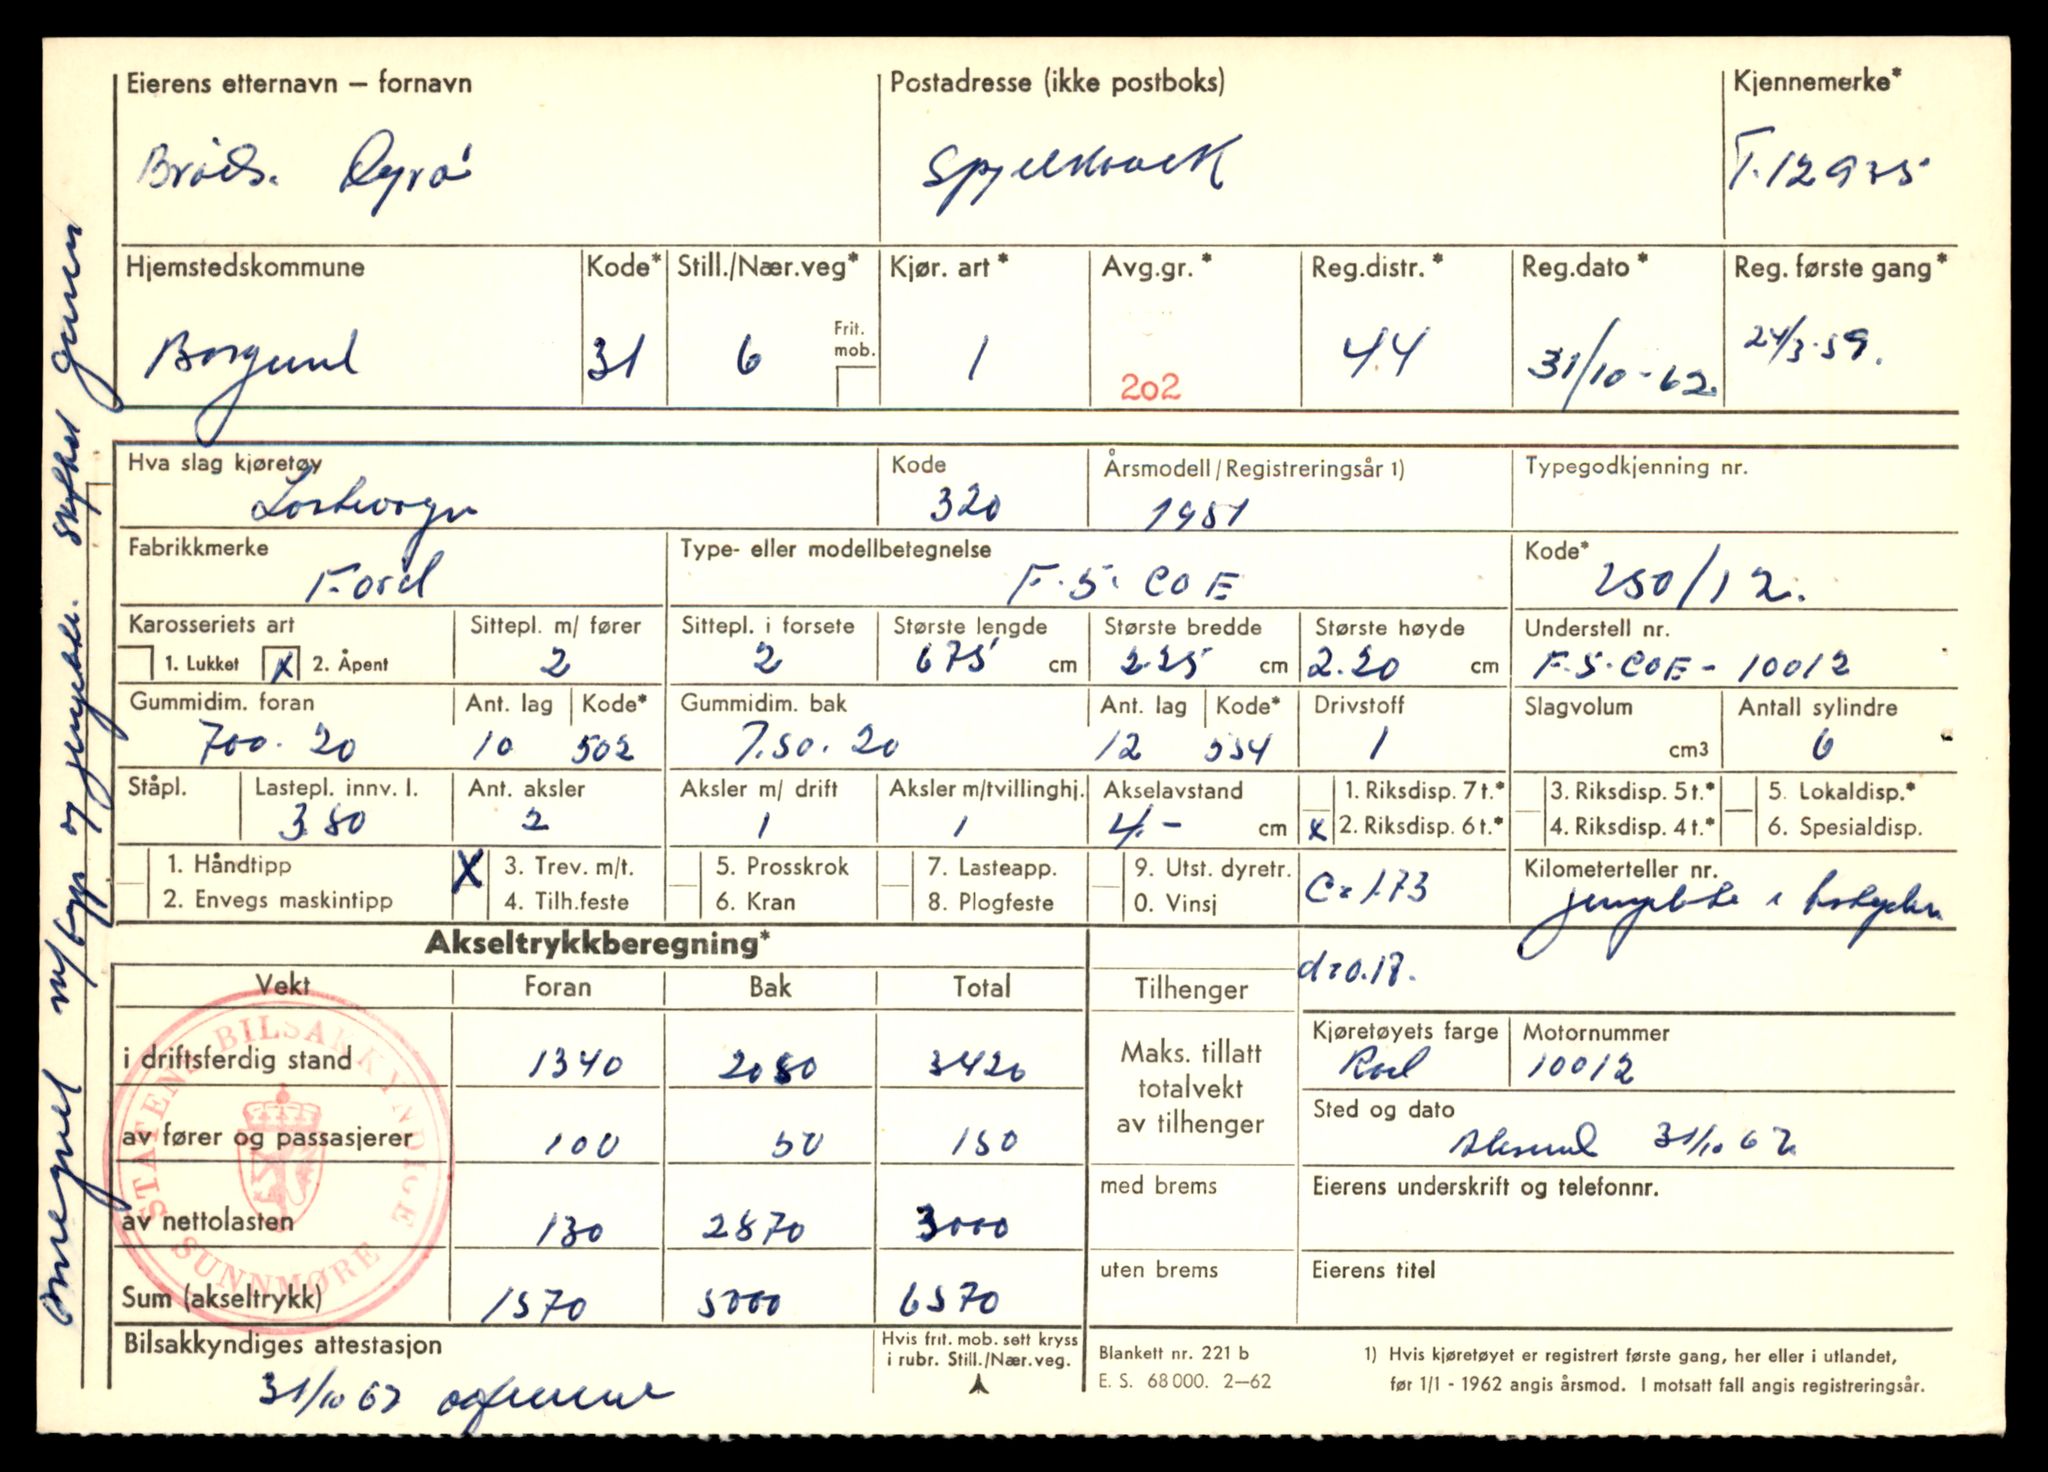 Eierens etternavn — fornavn
Postadresse (ikke postboks)
Kjennemerke*
Brøds. Dyrø
Spjelkavik
T.12935
Hjemstedskommune
Kode*
Still./Nær.veg*
Frit. mob.
Kjør. art*
Avg.gr.*
Reg.distr.*
Reg.dato*
Reg. første gang*
Borgund
31
6
1
202
44
31/10-62.
24/3-59.
Hva slag kjøretøy
Kode
Årsmodell/Registreringsår 1)
Typegodkjenning nr.
Lastevogn
320
1951
Fabrikkmerke
Type- eller modellbetegnelse
Kode*
Ford
F-5-COE
250/12.
Karosseriets art
Sittepl. m/ fører
Sittepl. i forsete
Største lengde
Største bredde
Største høyde
Understell nr.
1. Lukket
X 2. Åpent
2
2
675 cm
2.25 cm
2.20 cm
F-5-COE-10012
Gummidim. foran
Ant. lag
Kode*
Gummidim. bak
Ant. lag
Kode*
Drivstoff
Slagvolum
Antall sylindre
700-20
10
502
7.50-20
12
554
1
cm3
6
Ståpl.
Lastepl. innv. l.
Ant. aksler
Aksler m/ drift
Aksler m/tvillinghj.
Akselavstand
1. Riksdisp. 7 t.*
3. Riksdisp. 5 t.*
5. Lokaldisp.*
3.80
2
1
1
4.- cm
X 2. Riksdisp. 6 t.*
4. Riksdisp. 4 t.*
6. Spesialdisp.
1. Håndtipp
X 3. Trev. m/t.
5. Prosskrok
7. Lasteapp.
9. Utst. dyretr.
C=1.73
Kilometerteller nr.
2. Envegs maskintipp
4. Tilh.feste
6. Kran
8. Plogfeste
0. Vinsj
Akseltrykkberegning*
d=0.18.
Vekt
Foran
Bak
Total
Tilhenger
i driftsferdig stand
1340
2080
3420
Maks. tillatt
totalvekt
av tilhenger
Kjøretøyets farge
Motornummer
Rød
10012
av fører og passasjerer
100
50
150
Sted og dato
Ålesund 31/10 62
av nettolasten
130
2870
3000
med brems
Eierens underskrift og telefonnr.
Sum (akseltrykk)
1570
5000
6570
uten brems
Eierens titel
STATENS BILSAKKYNDIGE
SUNNMØRE
Bilsakkyndiges attestasjon
Hvis frit. mob. sett kryss
i rubr. Still./Nær.veg.
31/10 62
Blankett nr. 221 b
E. S. 68 000. 2—62
1) Hvis kjøretøyet er registrert første gang, her eller i utlandet,
før 1/1 - 1962 angis årsmod. I motsatt fall angis registreringsår.